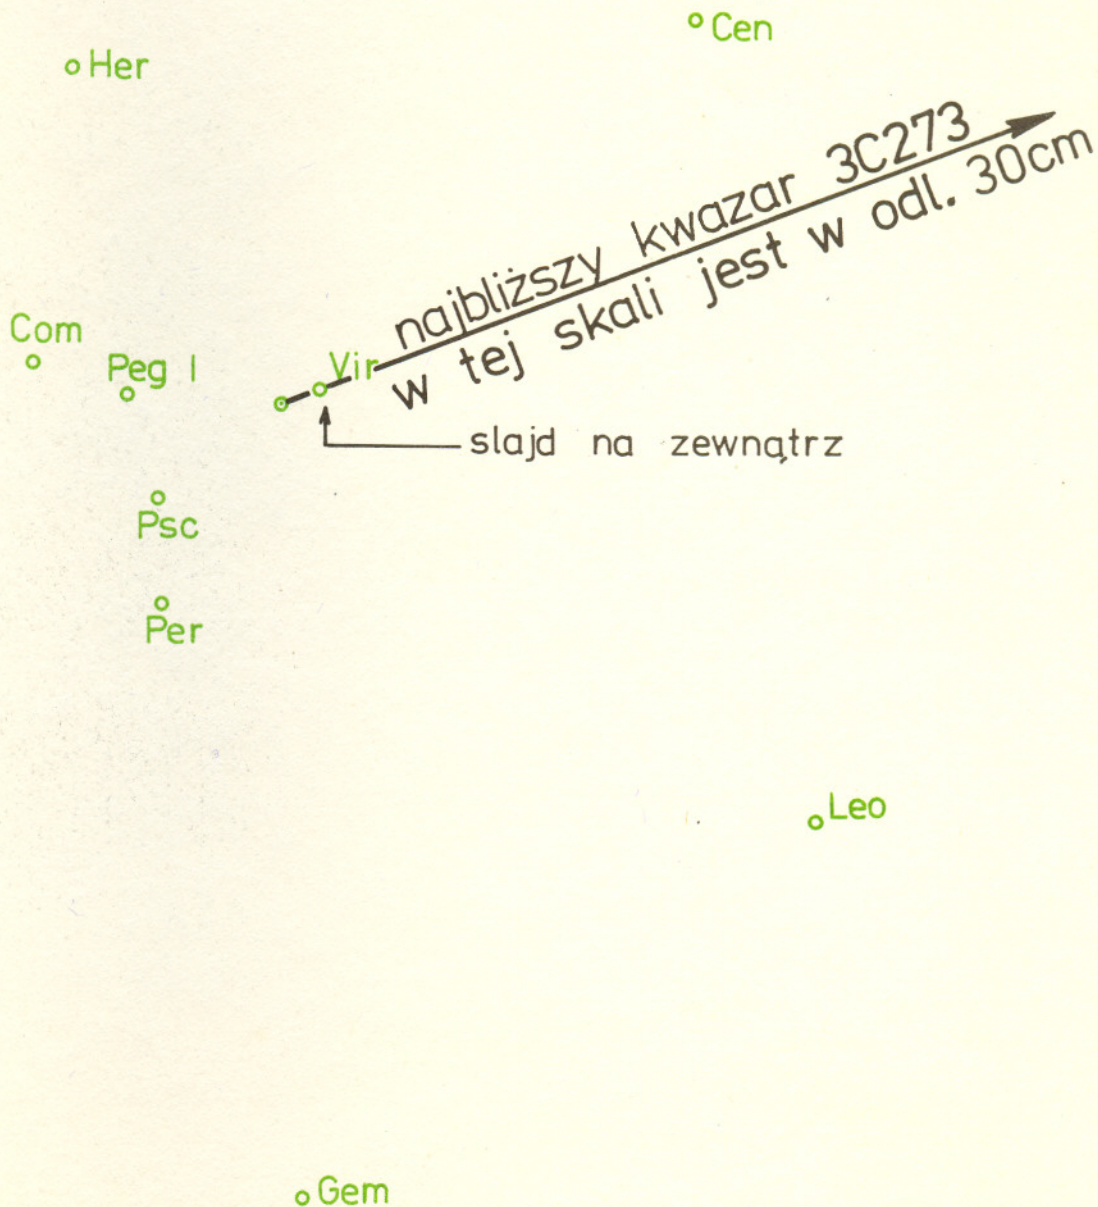 Cen
Her
najbliższy kwazar 3C273
w tej skali jest w odl. 30cm
Com
Peg I
Vir
slajd na zewnątrz
Psc
Per
Leo
Gem